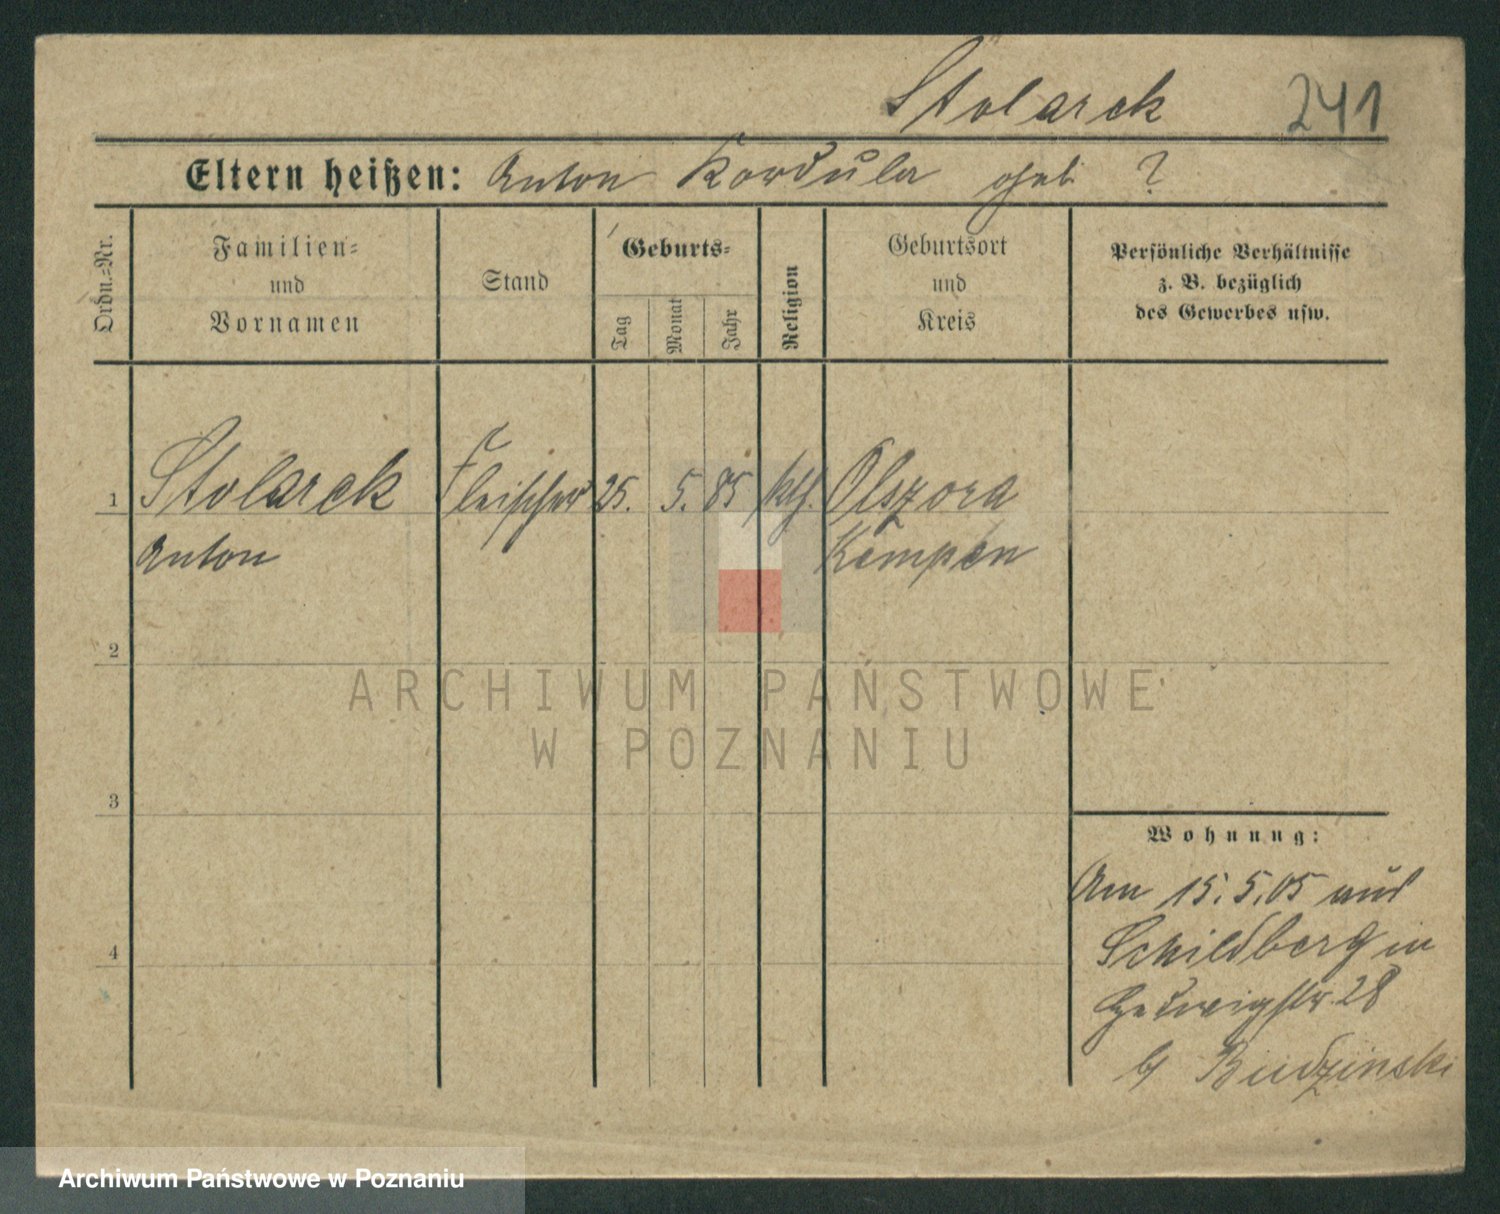 Stolarek 241
Eltern heißen: Anton Kordula geb. ?
Ordn.-Nr.
Familien-
und
Vornamen
Stand
Geburts-
Tag
Monat
Jahr
Religion
Geburtsort
und
Kreis
Persönliche Verhältnisse
z. B. bezüglich
des Gewerbes usw.
1 Stolarek Fleischer 25. 5. 85 kth. Olszora
Anton Kempen
2
ARCHIWUM PAŃSTWOWE
W POZNANIU
3
Wohnung:
Am 15.5.05 aus
Schildberg in
Hedwigstr. 28
b/ Budzinski
4
Archiwum Państwowe w Poznaniu